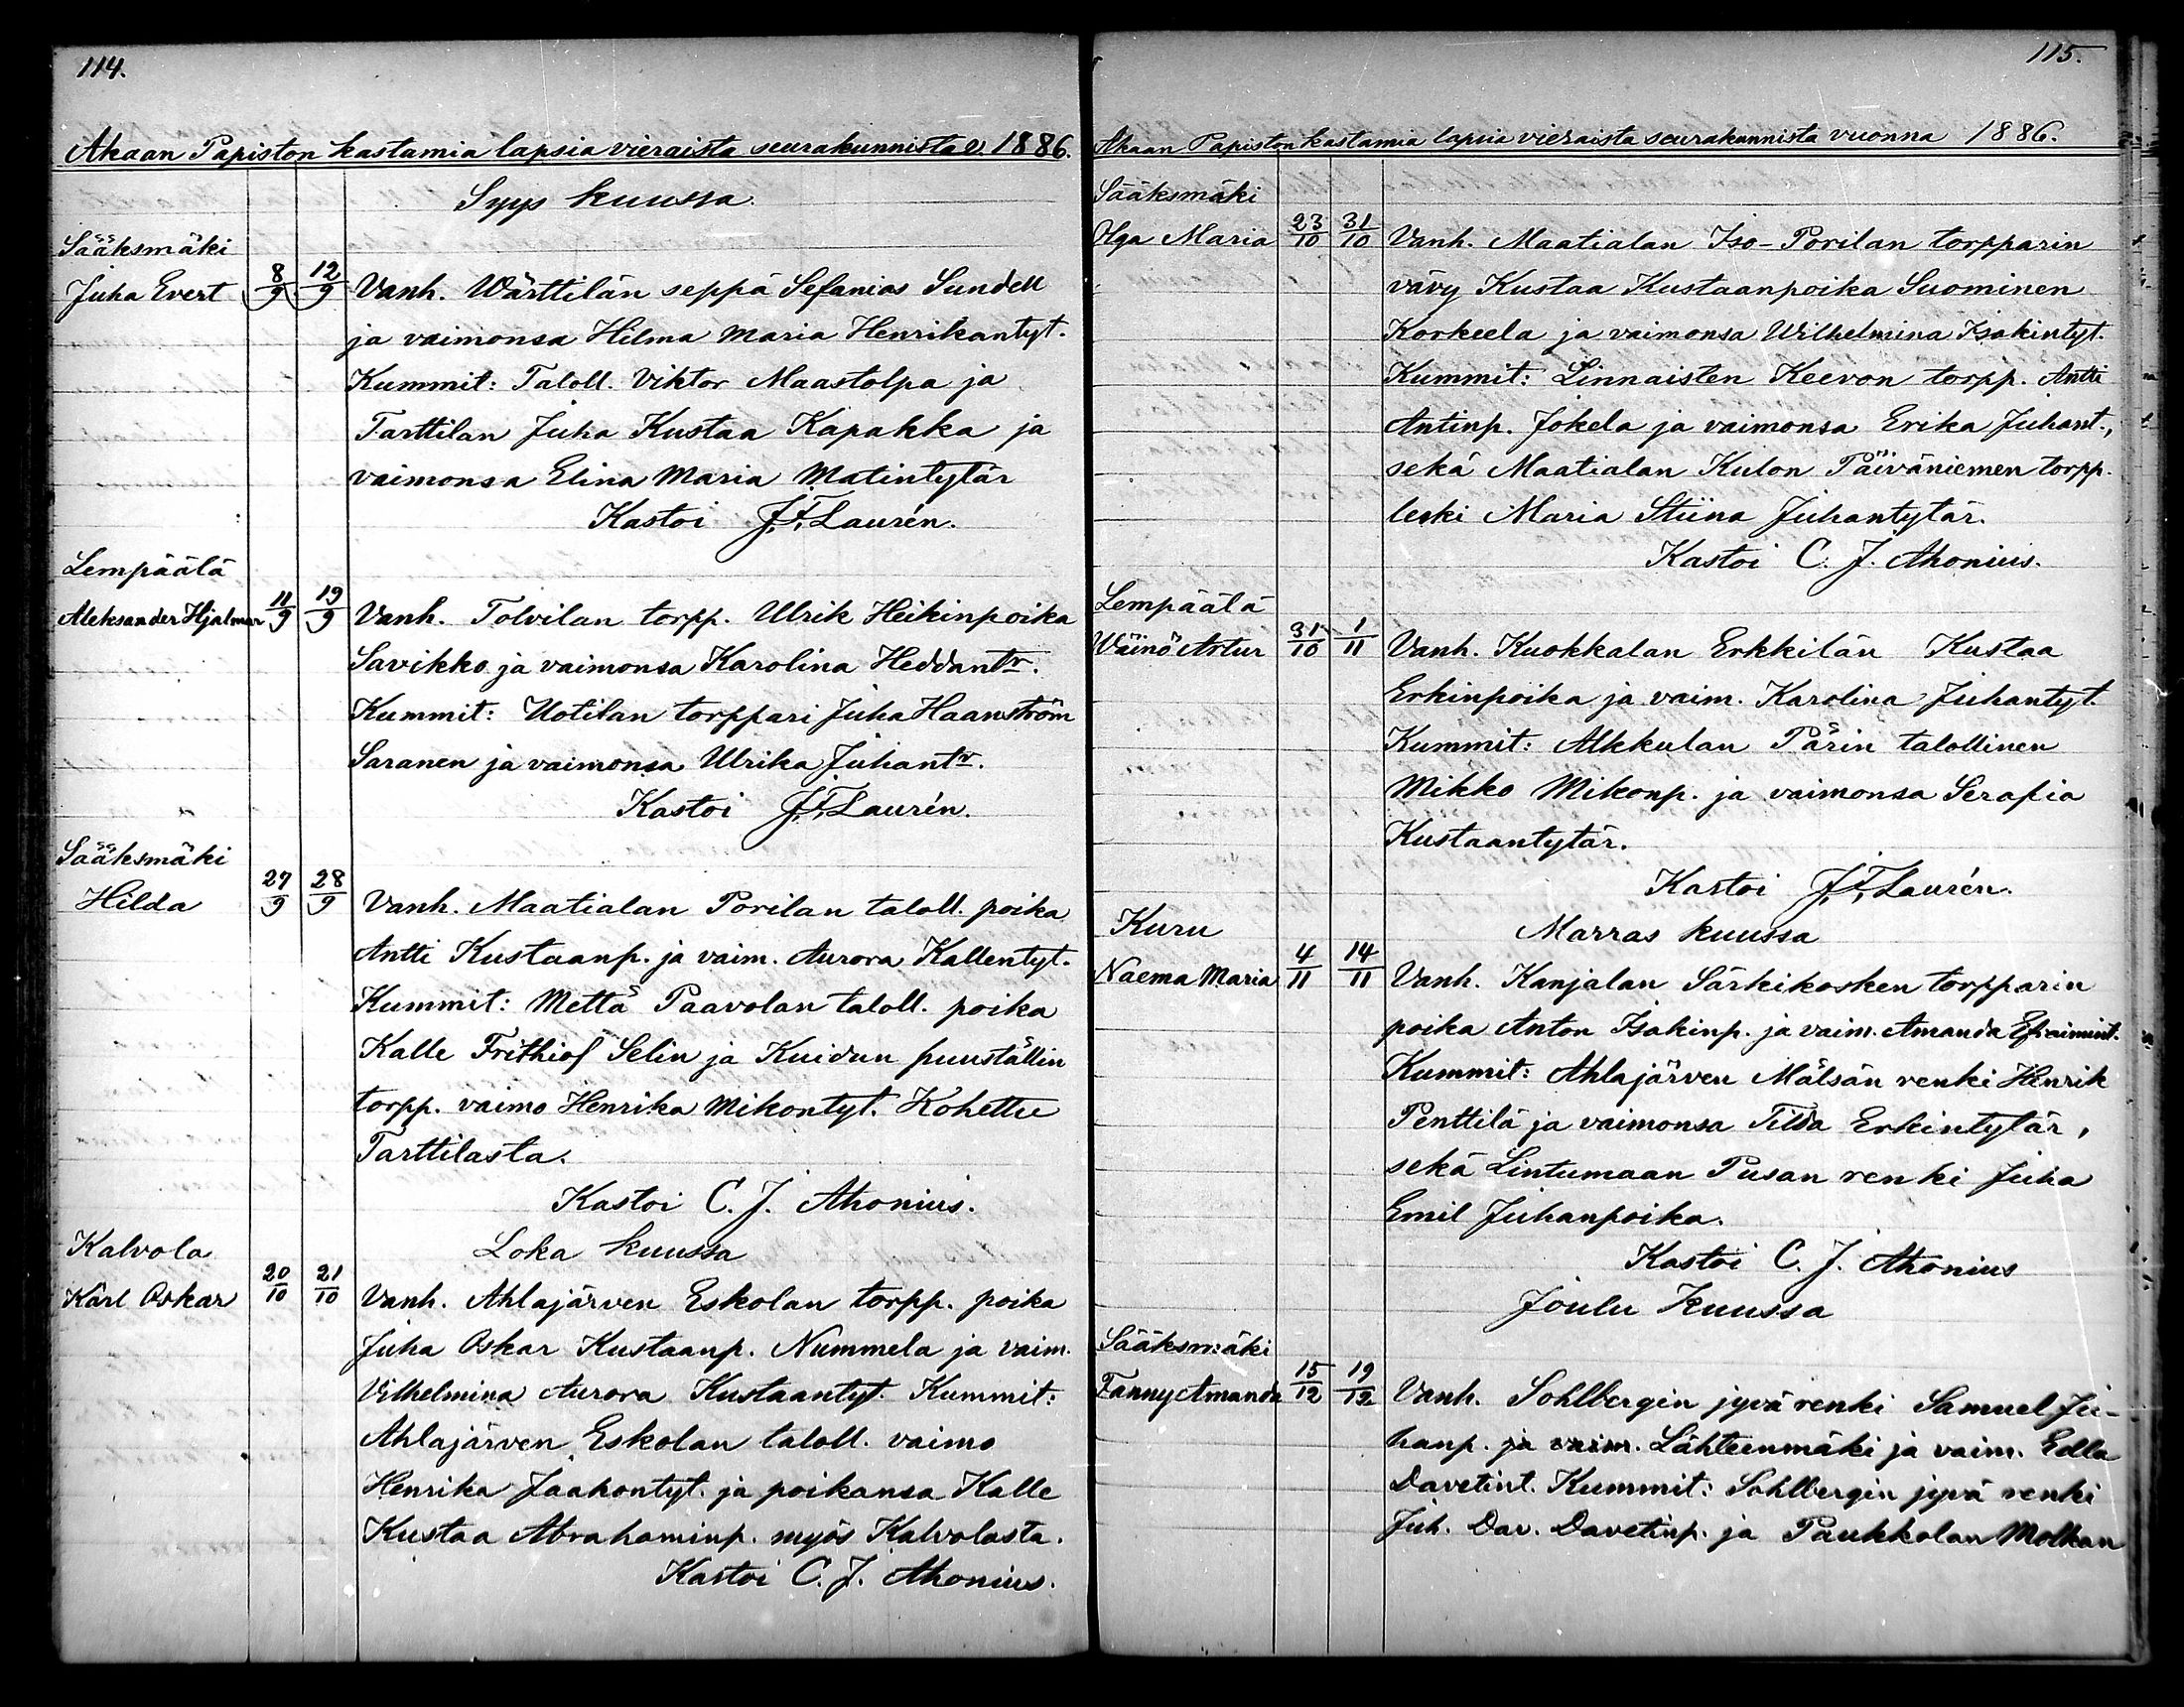 114.
Akaan Papiston kastamia lapsia vieraista seurakunnista v. 1886.
Syys kuussa
Sääksmäki
Juha Evert 8/9 12/9 Vanh. Wärttilän seppä Sefanias Sundell
ja vaimonsa Hilma Maria Henrikantyt.
Kummit: Taloll. Viktor Maastolpa ja
Tarttilan Juha Kustaa Kapakka ja
vaimonsa Elina Maria Matintytär
Kastoi J.F. Laurén.
Lempäälä
Aleksander Hjalmar 11/9 19/9 Vanh. Tolvilan torpp. Ulrik Heikinpoika
Savikko ja vaimonsa Karolina Heddantr.
Kummit: Uotilan torppari Juha Haanström
Saranen ja vaimonsa Ulrika Juhantr.
Kastoi J.F. Laurén.
Sääksmäki
Hilda 27/9 28/9 Vanh. Maatialan Porilan taloll. poika
Antti Kustaanp. ja vaim. Aurora Kallentyt.
Kummit: Mettä Paavolan taloll. poika
Kalle Frithiof Selin ja Kuidun puuställin
torpp. vaimo Henrika Mikontyt. Kohettu
Tarttilasta.
Kastoi C. J. Ahonius.
Kalvola
Loka kuussa
Karl Oskar 20/10 21/10 Vanh. Ahlajärven Eskolan torpp. poika
Juha Oskar Kustaanp. Nummela ja vaim.
Vilhelmina Aurora Kustaantyt. Kummit:
Ahlajärven Eskolan taloll. vaimo
Henrika Jaakontyt. ja poikansa Kalle
Kustaa Abrahaminp. myös Kalvolasta.
Kastoi C. J. Ahonius.
115.
Akaan Papiston kastamia lapsia vieraista seurakunnista vuonna 1886.
Sääksmäki
Olga Maria 23/10 31/10 Vanh. Maatialan Iso-Porilan torpparin
vävy Kustaa Kustaanpoika Suominen
Korkeela ja vaimonsa Wilhelmina Isakintyt.
Kummit: Linnaisten Keevon torpp. Antti
Antinp. Jokela ja vaimonsa Erika Juhant.,
sekä Maatialan Kulon Päiväniemen torpp.
leski Maria Stiina Juhantytär.
Kastoi C. J. Ahonius.
Lempäälä
Wäinö Artur 31/10 1/11 Vanh. Kuokkalan Erkkilän Kustaa
Erkinpoika ja vaim. Karolina Juhantyt.
Kummit: Alkkulan Pärin talollinen
Mikko Mikonp. ja vaimonsa Serafia
Kustaantytär.
Kastoi J.F. Laurén.
Kuru
Marras kuussa
Naema Maria 4/11 14/11 Vanh. Kanjalan Särkikosken torpparin
poika Anton Isakinp. ja vaim. Amanda Efraimint.
Kummit: Ahlajärven Mälsän renki Henrik
Penttilä ja vaimonsa Tilda Erkintytär,
sekä Lintumaan Pusan renki Juha
Emil Juhanpoika.
Kastoi C. J. Ahonius
Joulu Kuussa
Sääksmäki
Fanny Amanda 15/12 19/12 Vanh. Sohlbergin jyvä renki Samuel Ju-
hanp. ja vaim. Lähteenmäki ja vaim. Edla
Davetint. Kummit: Sohlbergin jyvä renki
Juh. Dav. Davetinp. ja Paukkolan Molkan